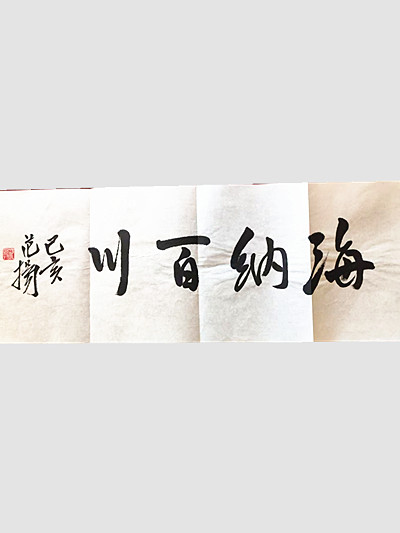 海纳百川
己亥
范扬